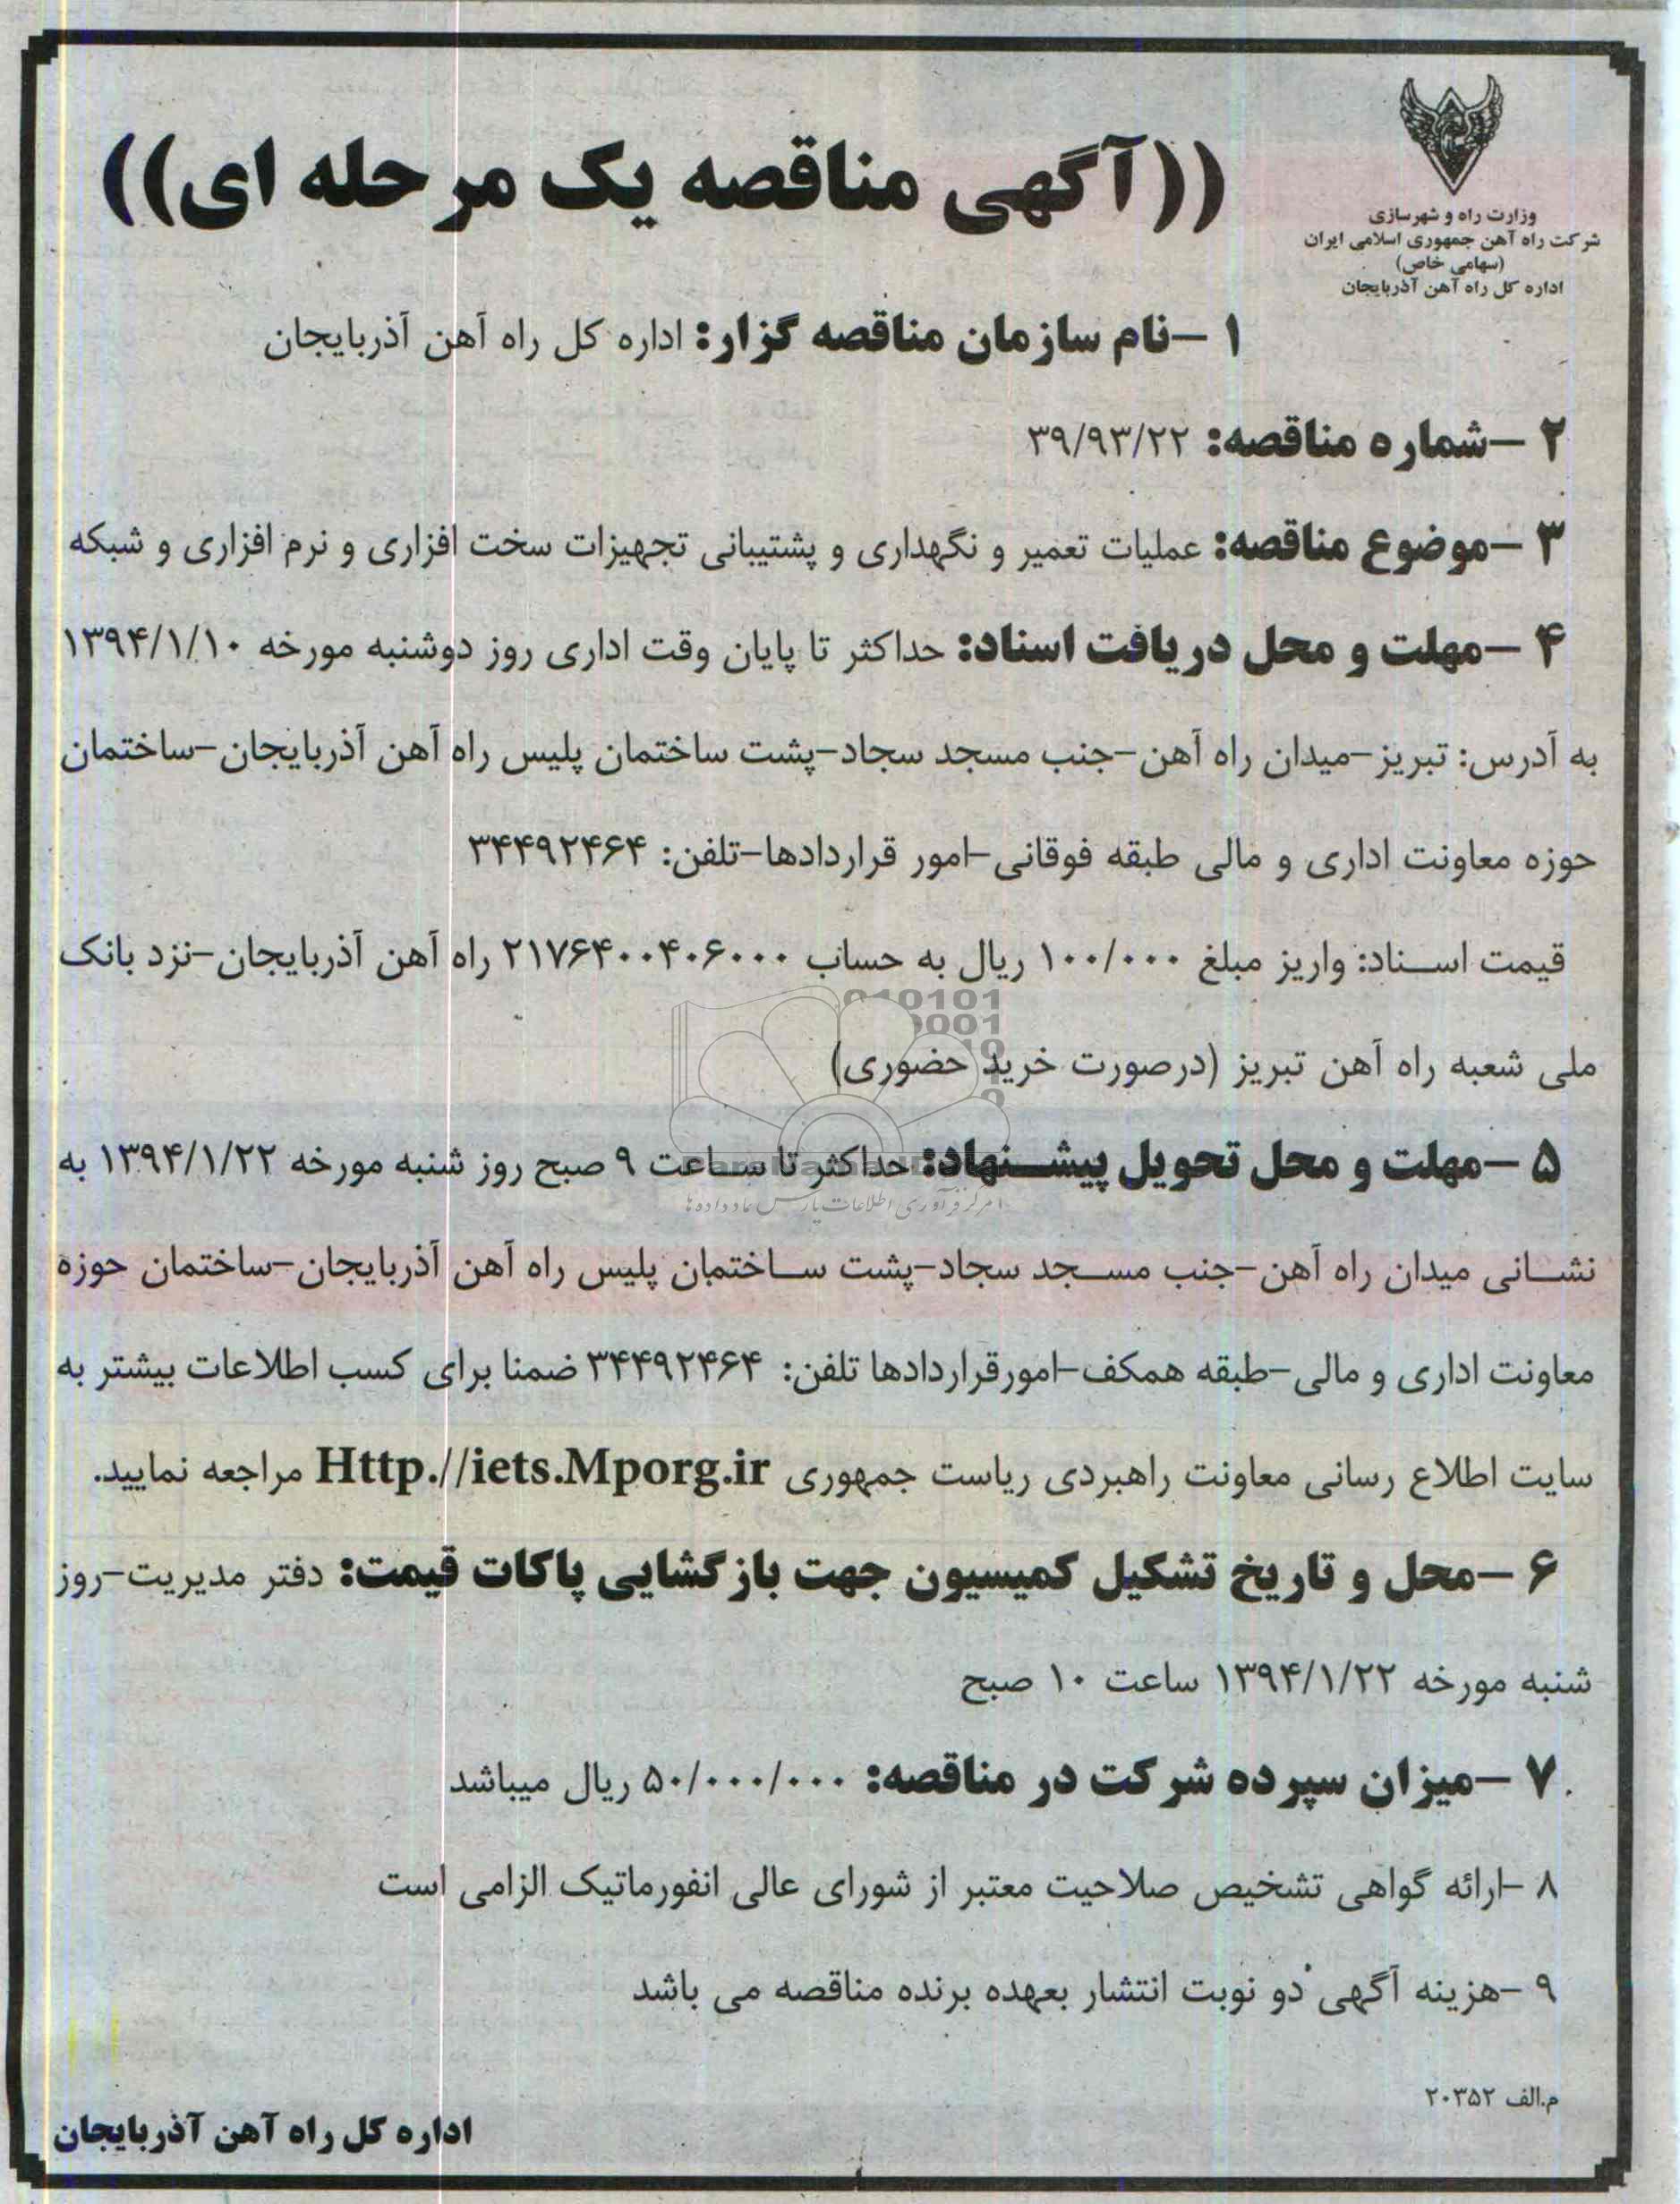 وزارت راه و شهرسازی
شرکت راه آهن جمهوری اسلامی ایران
(سهامی خاص)
اداره کل راه آهن آذربایجان
((آگهی مناقصه یک مرحله ای))
۱ –نام سازمان مناقصه گزار: اداره کل راه آهن آذربایجان
۲ –شماره مناقصه: ۳۹/۹۳/۲۲
۳ –موضوع مناقصه: عملیات تعمیر و نگهداری و پشتیبانی تجهیزات سخت افزاری و نرم افزاری و شبکه
۴ –مهلت و محل دریافت اسناد: حداکثر تا پایان وقت اداری روز دوشنبه مورخه ۱۳۹۴/۱/۱۰
به آدرس: تبریز–میدان راه آهن–جنب مسجد سجاد–پشت ساختمان پلیس راه آهن آذربایجان–ساختمان
حوزه معاونت اداری و مالی طبقه فوقانی–امور قراردادها–تلفن: ۳۴۴۹۲۴۶۴
قیمت اسناد: واریز مبلغ ۱۰۰/۰۰۰ ریال به حساب ۲۱۷۶۴۰۰۴۰۶۰۰۰ راه آهن آذربایجان–نزد بانک
ملی شعبه راه آهن تبریز (درصورت خرید حضوری)
۵ –مهلت و محل تحویل پیشنهاد: حداکثر تا ساعت ۹ صبح روز شنبه مورخه ۱۳۹۴/۱/۲۲ به
نشانی میدان راه آهن–جنب مسجد سجاد–پشت ساختمان پلیس راه آهن آذربایجان–ساختمان حوزه
معاونت اداری و مالی–طبقه همکف–امورقراردادها تلفن: ۳۴۴۹۲۴۶۴ ضمنا برای کسب اطلاعات بیشتر به
سایت اطلاع رسانی معاونت راهبردی ریاست جمهوری Http.//iets.Mporg.ir مراجعه نمایید.
۶ –محل و تاریخ تشکیل کمیسیون جهت بازگشایی پاکات قیمت: دفتر مدیریت–روز
شنبه مورخه ۱۳۹۴/۱/۲۲ ساعت ۱۰ صبح
۷ –میزان سپرده شرکت در مناقصه: ۵۰/۰۰۰/۰۰۰ ریال میباشد
۸ –ارائه گواهی تشخیص صلاحیت معتبر از شورای عالی انفورماتیک الزامی است
۹ –هزینه آگهی دو نوبت انتشار بعهده برنده مناقصه می باشد
م.الف ۲۰۳۵۲
اداره کل راه آهن آذربایجان